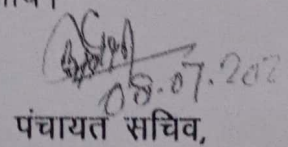 08.07.202
पंचायत सचिव,